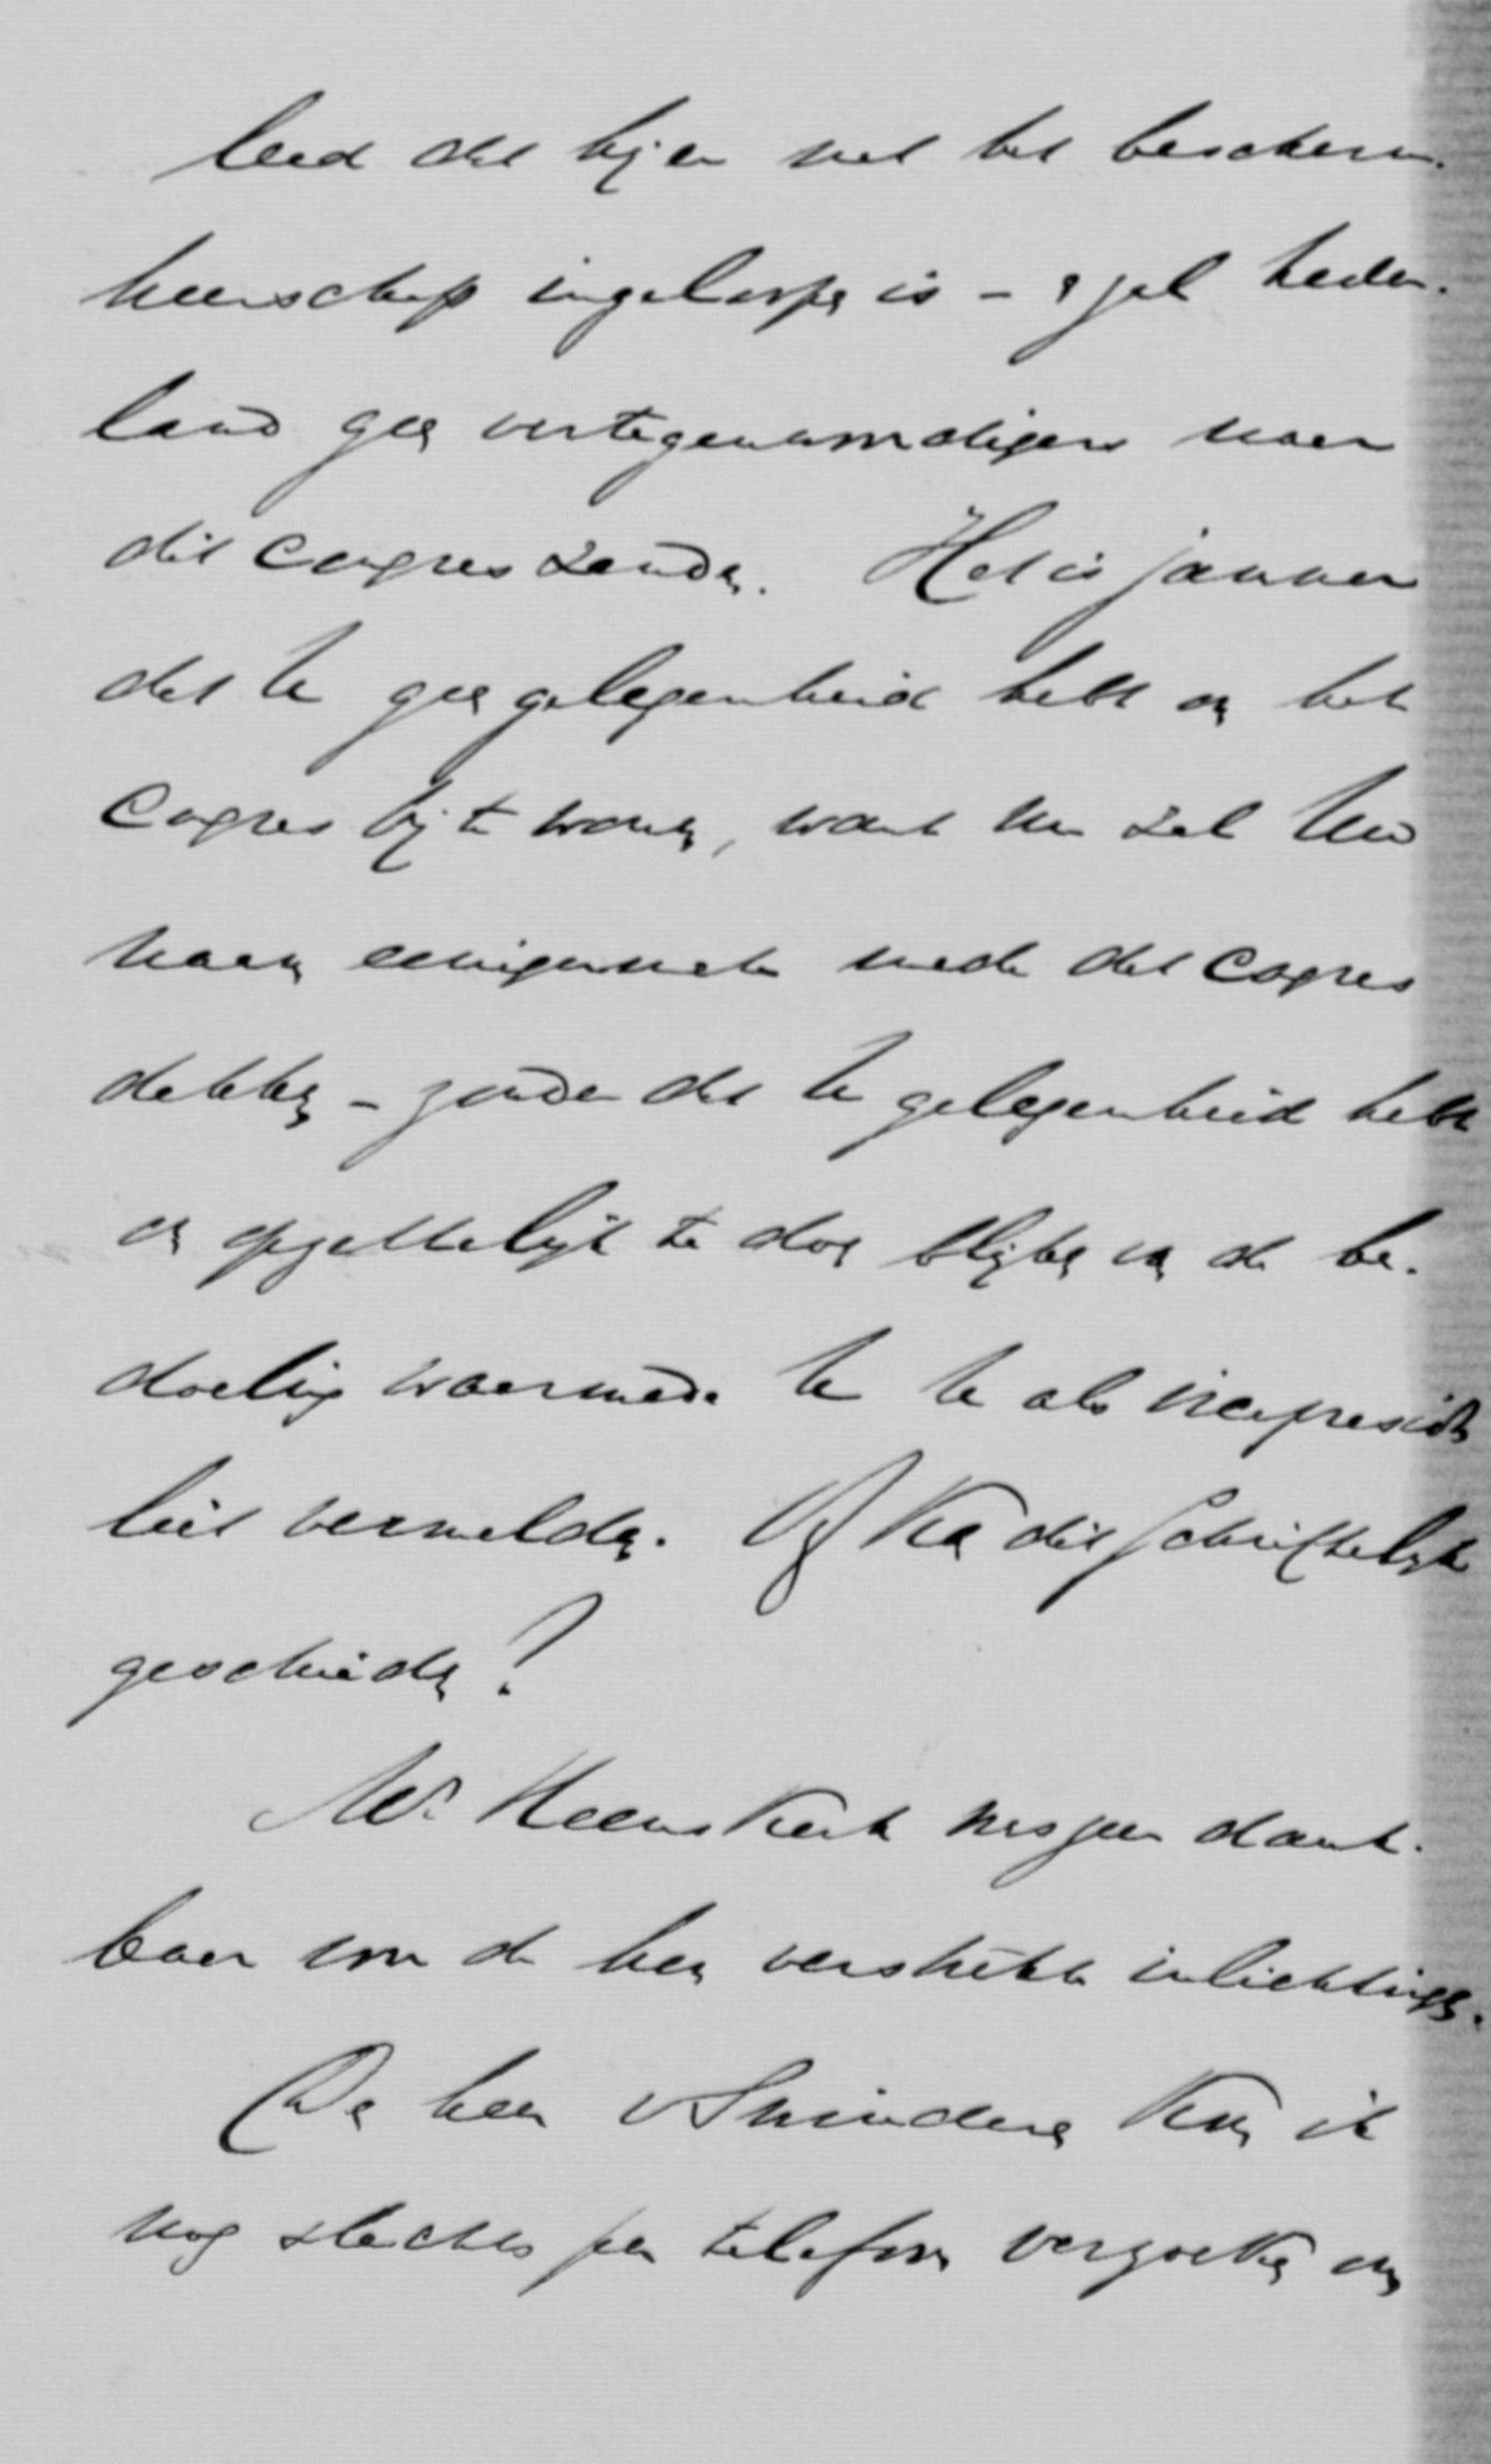 leed dat hij er met het bescherm-
heerschap ingeloopen is – zal Neder-
land geen vertegenwoordigers naar
dit congres zenden. Het is jammer
dat U geen gelegenheid hebt om het
Congres bij te wonen, want nu zal Uw
naam eenigermate mede dat Congres
dekken – zonder dat U gelegenheid hebt
om opzettelijk te doen blijken van de be-
doeling waarmede U U als vicepresident
liet vermelden. Of kan dit schriftelijk
geschieden?
Mr. Heemskerk was zeer dank-
baar voor de hem verstrekte inlichtingen.
De heer v Swinderen kon ik
nog slechts per telefoon verzoeken om